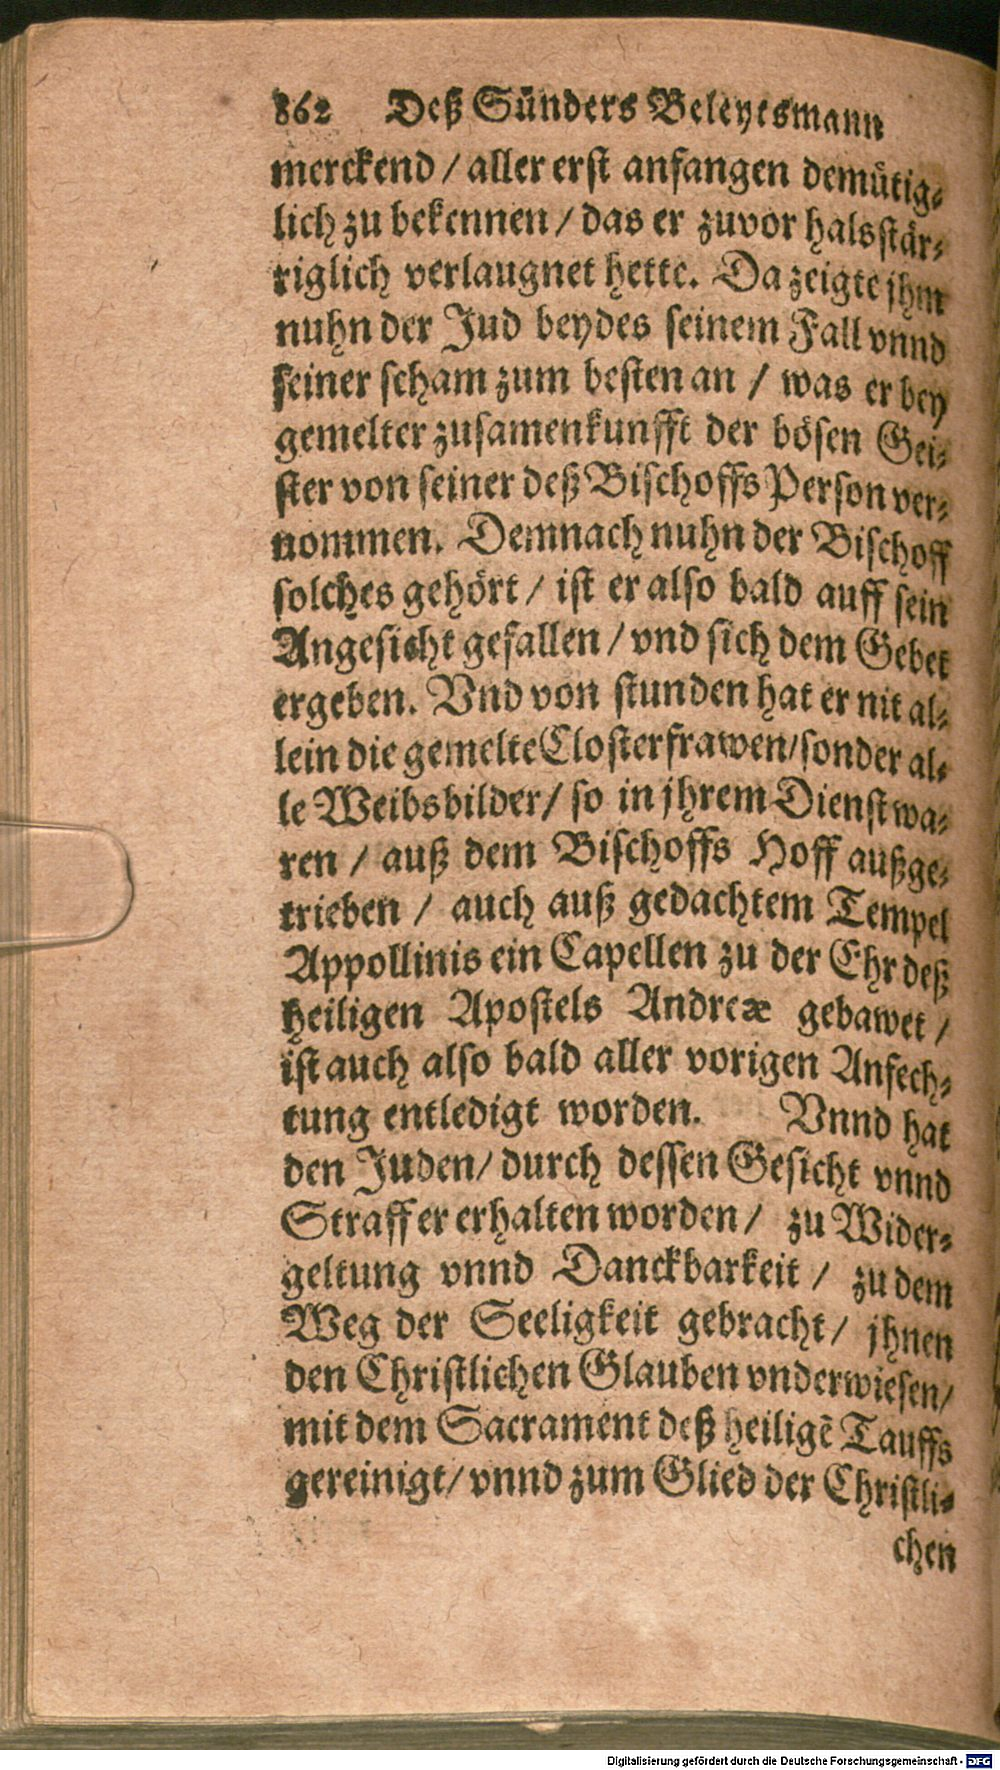 862 Deß Sünders Beleytsmann
merckend / aller erst anfangen demütig⸗
lich zu bekennen / das er zuvor halsstär⸗
riglich verlaugnet hette. Da zeigte jhm
nuhn der Jud beydes seinem Fall vnnd
seiner scham zum besten an / was er bey
gemelter zusamenkunfft der bösen Gei⸗
ster von seiner deß Bischoffs Person ver⸗
nommen. Demnach nuhn der Bischoff
solches gehört / ist er also bald auff sein
Angesicht gefallen / vnd sich dem Gebet
ergeben. Vnd von stunden hat er nit al⸗
lein die gemelte Closterfrawen/sonder al⸗
le Weibsbilder/ so in jhrem Dienst wa⸗
ren / auß dem Bischoffs Hoff außge⸗
trieben / auch auß gedachtem Tempel
Appollinis ein Capellen zu der Ehr deß
heiligen Apostels Andreæ gebawet /
ist auch also bald aller vorigen Anfech⸗
tung entledigt worden. Vnnd hat
den Juden/ durch dessen Gesicht vnnd
Straff er erhalten worden / zu Wider⸗
geltung vnnd Danckbarkeit / zu dem
Weg der Seeligkeit gebracht / jhnen
den Christlichen Glauben vnderwiesen/
mit dem Sacrament deß heiligē Tauffs
gereinigt/ vnnd zum Glied der Christli⸗
chen
Digitalisierung gefördert durch die Deutsche Forschungsgemeinschaft - DFG